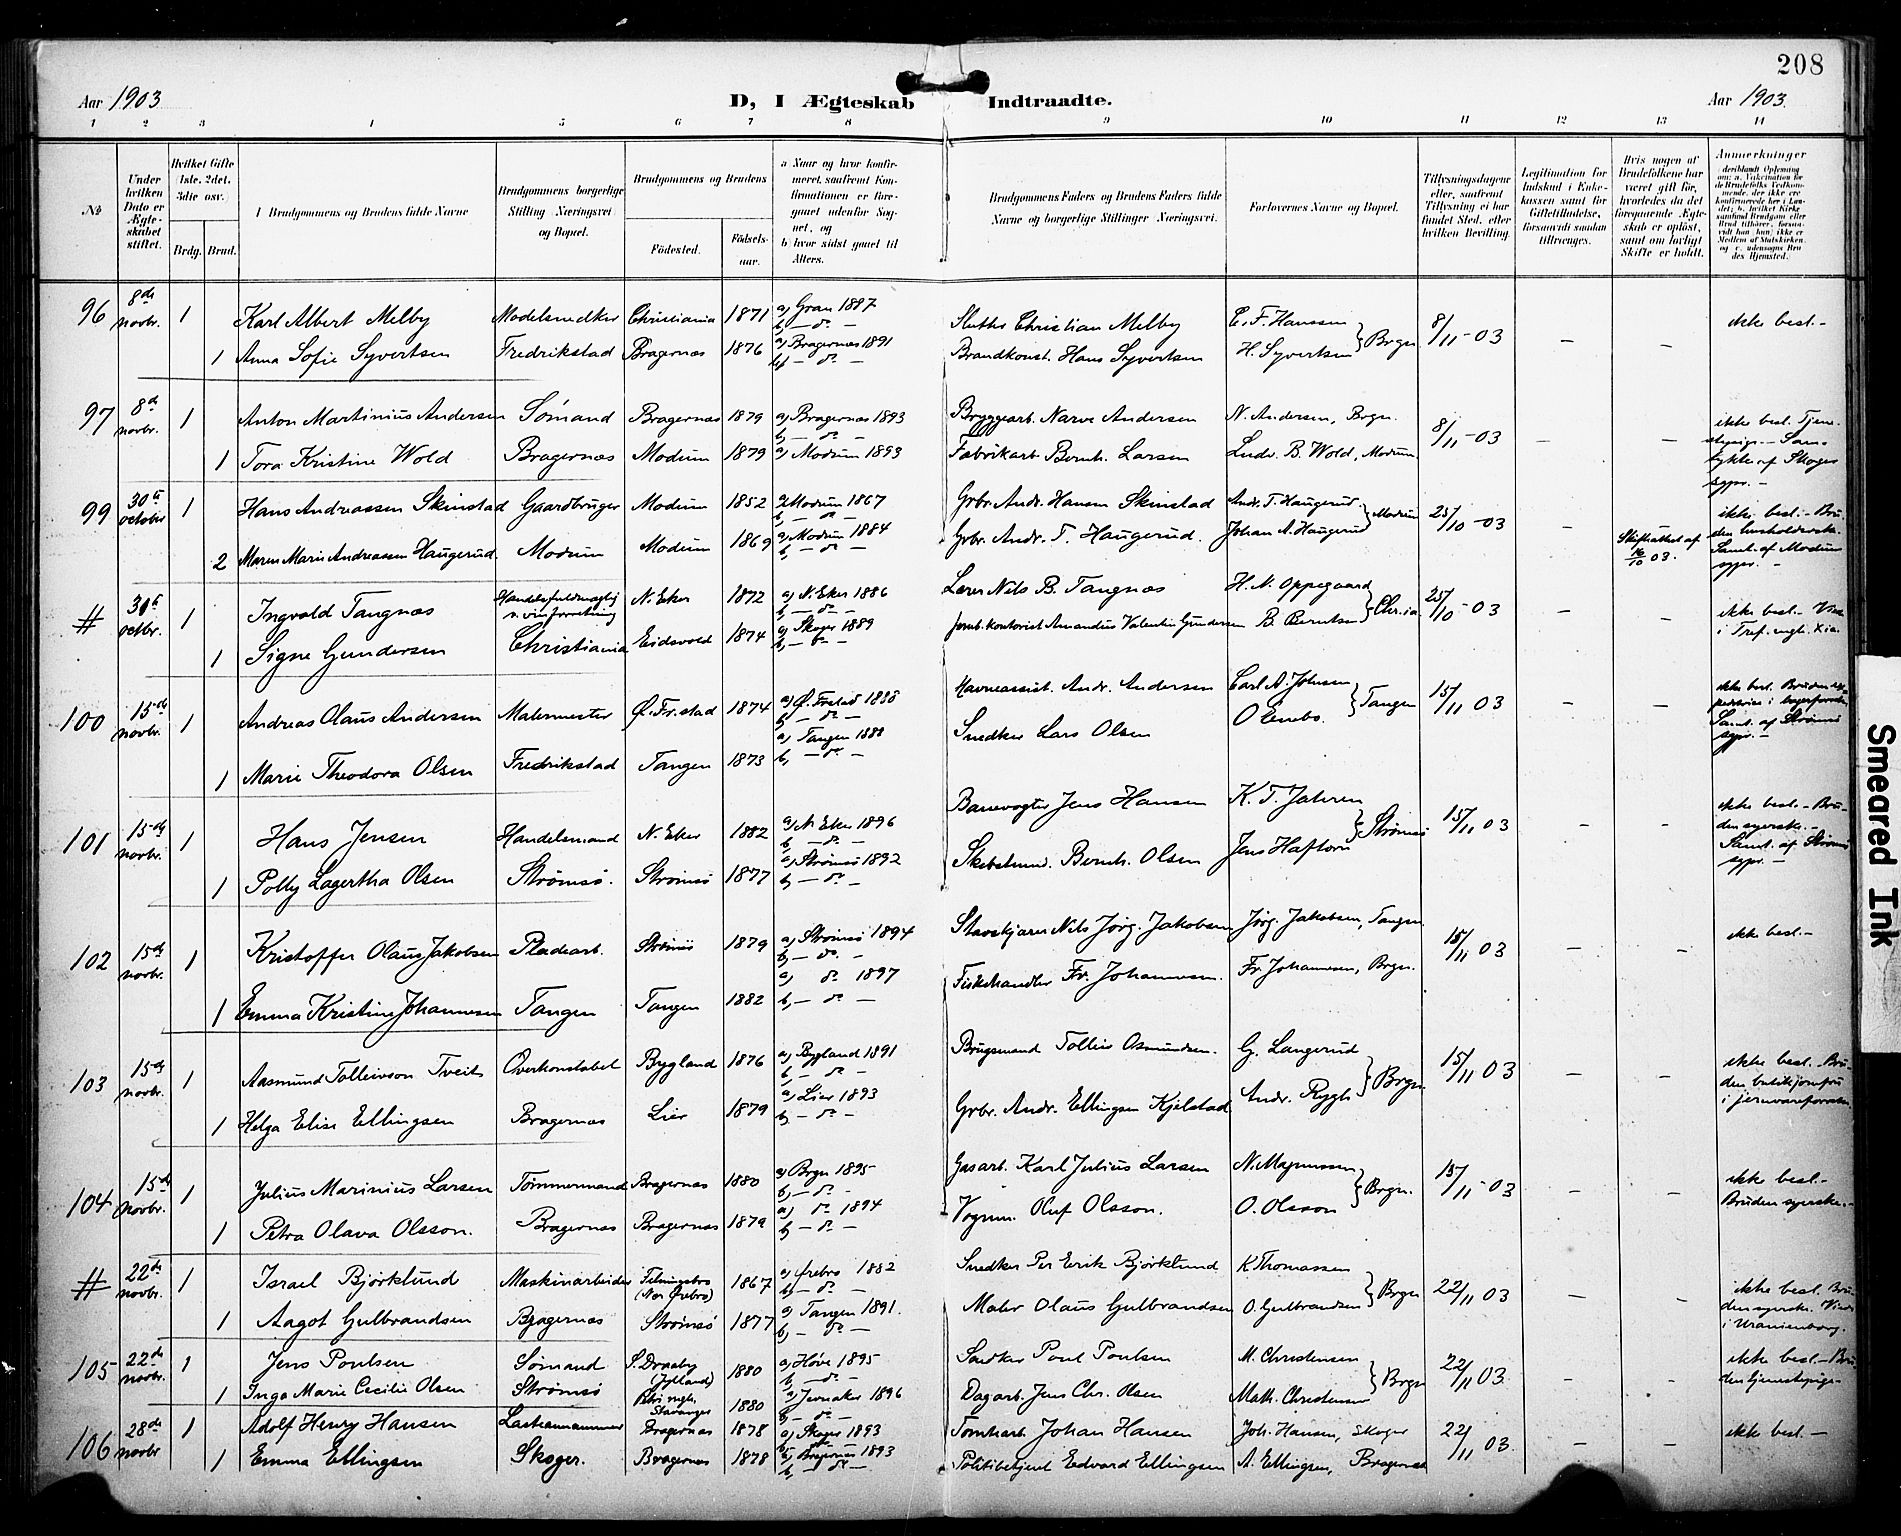 208
Aar 1903
D, I Ægteskab Indtraadte.
Aar 1903.
1 2 3 4 5 6 7 8 9 10 11 12 13 14
№
Under hvilken Dato er Ægteskabet stiftet.
Hvilket Gifte (1ste, 2det, 3die osv.)
Brdg. Brud.
Brudgommens og Brudens fulde Navne
Brudgommens borgerlige Stilling Næringsvei og Bopæl.
Brudgommens og Brudens
Fødested. Fødselsaar.
a Naar og hvor konfirmeret, saafremt Konfirmationen er foregaaet udenfor Sognet, og
b hvor sidst gaaet til Alters.
Brudgommens Faders og Brudens Faders fulde Navne og borgerlige Stillinger Næringsvei.
Forlovernes Navne og Bopæl.
Tillysningsdagene eller, saafremt Tillysning ei har fundet Sted, efter hvilken Bevilling.
Legitimation for Indskud i Enkekassen samt for Giftetilladelse, forsaavidt saadan tiltrænges.
Hvis nogen af Brudefolkene har været gift før, hvorledes da det foregaaende Ægteskab er opløst, samt om lovligt Skifte er holdt.
Anmerkninger
96 8de novbr. 1 Karl Albert Melby Modelsnedker Christiania 1871 a) Gran 1887 b, — do — Christian Melby C. F. Hanssen } Brgn 8/11 - 03 — — ikke besl. -
1 Anna Sofie Syvertsen Fredrikstad Bragernæs 1876 a) Bragernæs 1891 b, — do — Brandkonst. Hans Syvertsen H. Syvertsen
97 8d novbr. 1 Anton Martinius Andersen Sømand Bragernæs 1879 a) Bragernæs 1893 b, — do — Bryggearb. Narve Andersen N. Andersen, Brgn. 8/11 - 03 — — ikke besl. Tjenestepige. - Sam-
1 Tora Kristine Wold Bragernæs Modum 1879 a) Modum 1893 Fabrikarb. Bernh. Larsen Ludv. B. Wold, Modum tykke af Skoger sgpr. -
99 30te octobr 1 Hans Andreassen Skinstad Gaardbruger Modum 1852 a) Modum 1867 b, — do — Grbr. Andr. Hansen Skinstad Andr. T. Haugerud } Modum 25/10 - 03 — ikke besl. - Bruden husholderske.
2 Maren Marie Andreassen Haugerud Modum Modum 1869 a) Modum 1884 b, — do — Grbr. Andr. T. Haugerud. Johan A. Haugerud Skifteattest af 16/10 03. Samt. af Modum sgpr. -
# 30te octbr. 1 Ingvald Tangnæs Handelsfuldmægtig v. vinforretning N. Eker 1872 a) N. Eker 1886 b, — do — Lærer Nils B. Tangnæs H. N. Oppegaard } Chr.ia 25/10 - 03 — — ikke besl. -
1 Signe Gundersen Christiania Eidsvold 1874 a) Skoger 1889 b, — do — Jernb.kontorist Amandus Valentin Gundersen B. Berntsen i Tref. mgh. Xia.
100 15-de novbr. 1 Andreas Olaus Andersen Malermester Ø. Fr.stad 1874 a) Ø. Frstad 1888 b, — do — Havneassist. Andr. Andersen Carl A. Johnsen } Tangen 15/11 03 — — ikke besl. Bruden
1 Marie Theodora Olsen Fredrikstad Tangen 1873 a) Tangen 1888 b, — do — Snedker Lars Olsen O. Enebo. Samt. af Strømsø sgpr. -
101 15-de novbr. 1 Hans Jensen Handelsmand N. Eker 1882 a) N. Eker 1896 b, — do — Banevogter Jens Hansen K. T. Jahren } Strømsø 15/11 03 — — ikke besl. - Bruden syerske. -
1 Polly Lagertha Olsen Strømsø. Strømsø 1877 a) Strømsø 1892 b, — do — Skibstmd. Bernh. Olsen Jens Haftorn Samt. af Strømsø sgpr. —
102 15de novbr. 1 Kristoffer Olaus Jakobsen Pladsarb. Strømsø 1879 a) Strømsø 1894 b, — do — Nils Jørg. Jakobsen Jørg. Jakobsen, Tangen 15/11 03 — — ikke besl. -
1 Emma Kristine Johannesen Tangen Tangen 1882 a) do 1897 b, — do — Fiskehandler Fr. Johannesen. Fr. Johannesen, Brgn.
103 15de novbr. 1 Aasmund Tolleivson Tveit Overkonstabel Bygland 1876 a) Bygland 1891 b, — do — Brugsmand Tolleiv Osmundsen. G. Langerud } Brgn 15/11 03 — — ikke besl. - Bruden butikjomfru
1 Helga Elise Ellingsen Bragernæs Lier 1879 a) Lier 1893 b, — do — Grbr. Andr. Ellingsen Kjelstad Andr. Rygh i jernvareforretn.
104 15de novbr. 1 Julius Marinius Larsen Tømmermand Bragernæs 1880 a) Brgn 1895 b, — do - Gasarb. Karl Julius Larsen N. Magnussen } Brgn. 15/11 - 03 — — ikke besl. -
1 Petra Olava Olsson. Bragernæs Bragernæs 1879 a) do 1894 b, — do — Vognm. Oluf Olsson. O. Olsson Bruden syerske. -
# 22de novbr. 1 Israel Björklund Maskinarbeider (Nær Ørebro) 1867 a) Ørebro 1882 b, — do — Snedker Per Erik Björklund K Thomassen } Brgn 22/11 03 — — ikke besl. Bruden syerske.
1 Aagot Gulbrandsen Bragernæs Strømsø 1877 a) Tangen 1891. b, — do — Maler Olaus Gulbrandsen O. Gulbrandsen i Uranienborg.
105 22de novbr. 1 Jens Poulsen Sømand S. Draaby (Jylland) 1880 a) Høve 1895 b, — do — Snedker Poul Poulsen M. Christensen } Brgn 22/11 03. — — ikke besl. - Bruden tjenestepige -
1 Inga Marie Cecilie Olsen Strømsø Petri mgh. Stavanger 1880 a) Jevnaker 1896 b, — do — Dagarb. Jens Chr. Olsen Math. Christensen
106 28de novbr 1 Adolf Henry Hansen Bragernæs 1878 a) Skoger 1893 b, — do — Tomtearb. Johan Hansen Joh. Hansen, Skoger 22/11 03. — — ikke besl. —
1 Emma Ellingsen Skoger. Bragernæs 1878 a) Bragernæs 1893 b, — do — Politibetjent Edvard Ellingsen A. Ellingsen, Bragernæs
Smeared Ink